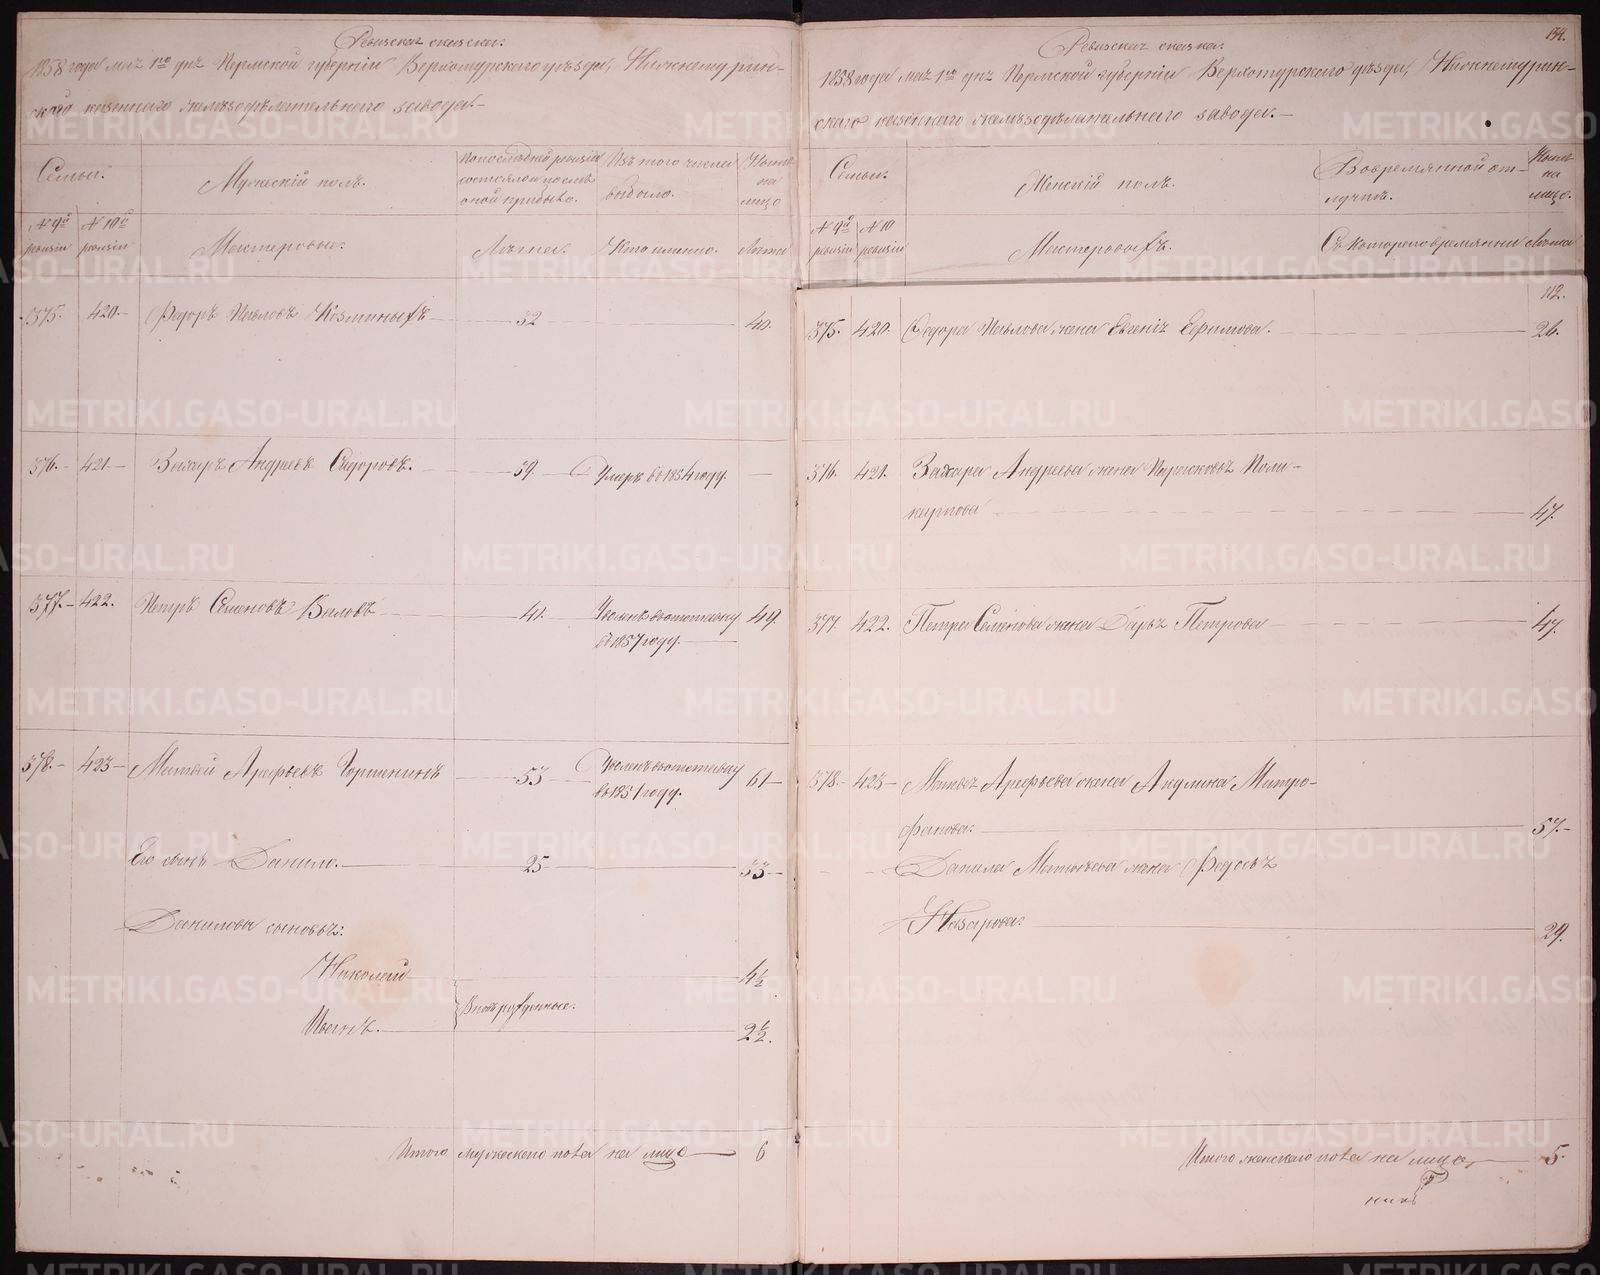 Ревизская сказка.
1858 года мая 1го дня Пермской губернии Верхотурского уѣзда, Нижнетурин-
ского казеннаго желѣзодѣлательнаго завода.
Семьи.
Мужескій полъ.
По послѣдней ревизіи состояло и послѣ оной прибыло.
Изъ того числа выбыло.
Нынѣ на лицо
№ 9й ревизіи
№ 10й ревизіи
Мастеровые.
Лѣта.
Когда именно.
Лѣта
375. 420. Федоръ Павловъ Козминыхъ 32 40.
376. 421. Захаръ Андреевъ Сидоровъ. 59. Умеръ въ 1854 году.
377. 422. Петръ Семеновъ Валовъ 41. Уволенъ въ отставку 49.
въ 1857 году.
378. 423 Матвѣй Арефьевъ Паршенинъ 53 Уволенъ въ отставку 61
въ 1851 году.
Его сынъ Данило. 25 33
Данилова сыновья:
Николай 4½
Вновь рожденные.
Иванъ. 2½.
Итого мужескаго пола на лицо 6
134.
Ревизская сказка.
1858 года мая 1го дня Пермской губерніи Верхотурскаго уѣзда, Нижнетурин-
скаго казеннаго желѣзодѣлательнаго завода.
Семьи.
Женскій полъ.
Во временной от-
лучкѣ.
Нынѣ на лицо.
№ 9й ревизіи
№ 10 ревизіи
Мастеровыхъ.
Съ котораго времяни
Лѣта
112.
375. 420. Федора Павлова жена Евгенія Ефимова. 26.
376. 421. Захара Андреева жена Парасковья Поли-
карпова 47.
377. 422. Петра Семенова жена Дарья Петрова 47.
378 423 Матвѣя Арефьева жена Акулина Митро-
фанова: 57.
Данила Матвѣева жена Федосья
Назарова: 29.
Итого женскаго пола на лицо, 5.